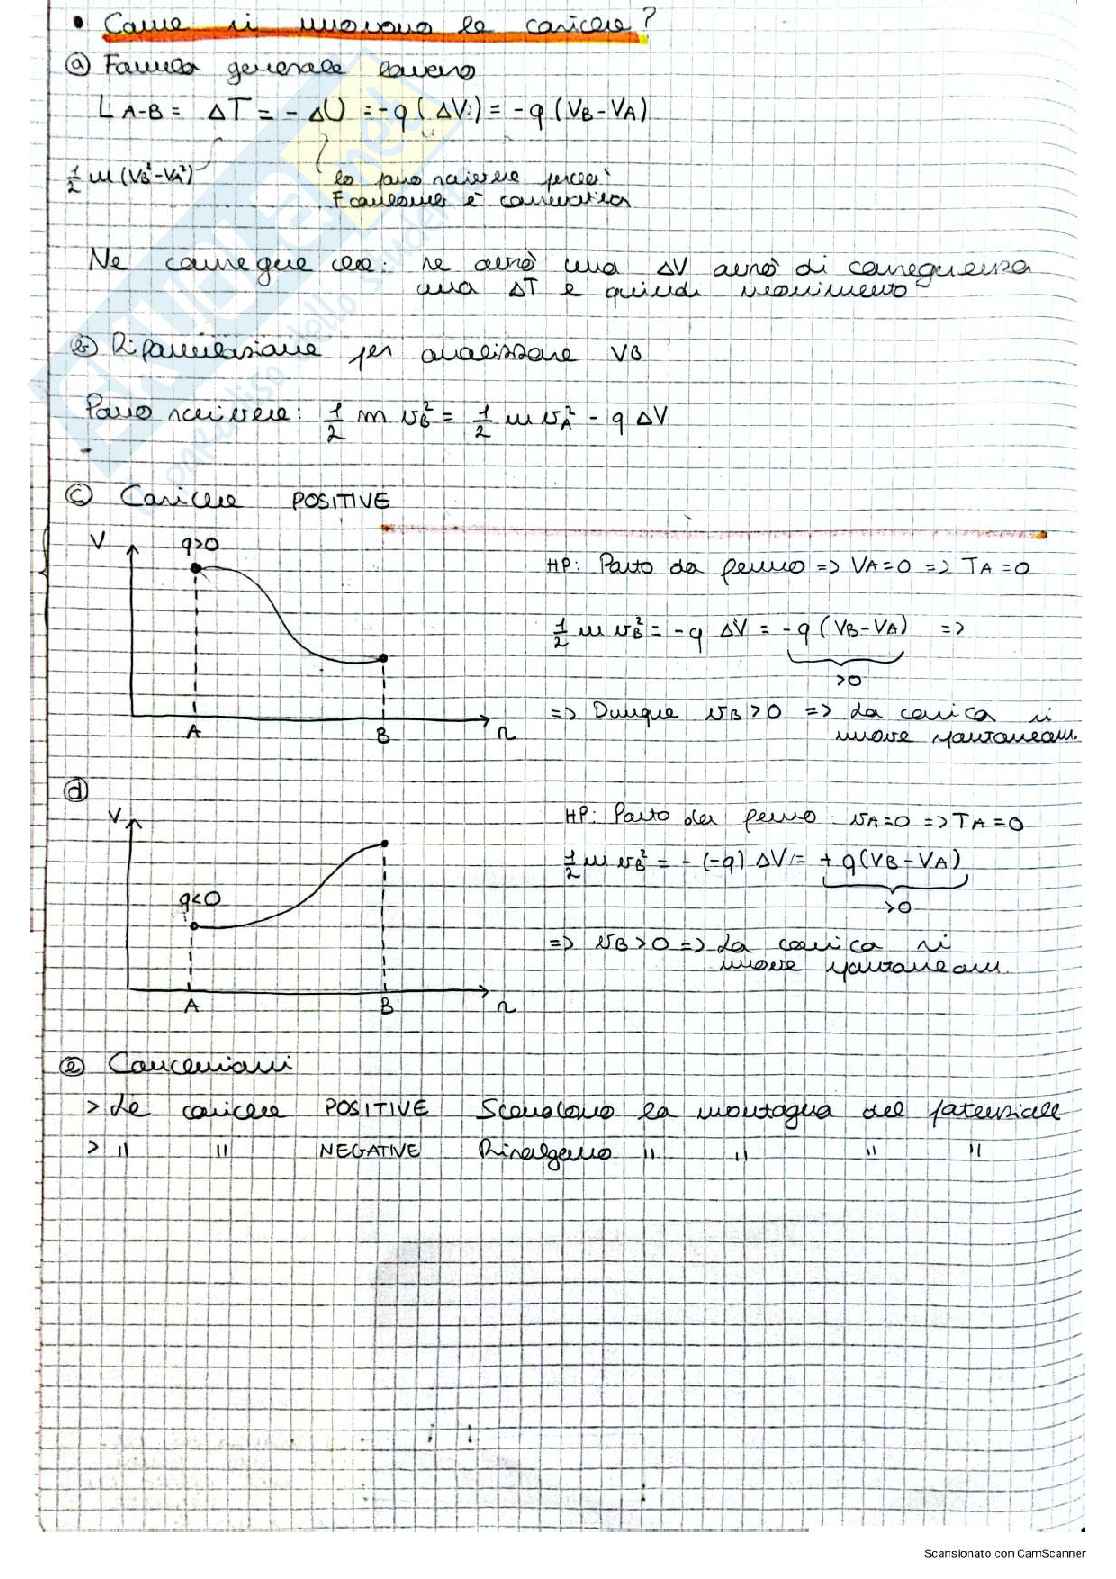 • Come si muovono le cariche?
ⓐ Formula generale lavoro
L A-B = ΔT = -ΔU = -q (ΔV) = -q (VB-VA)
1/2 m (VB²-VA²)
lo posso scrivere perché
F coulomb è conservativa
Ne consegue che: se avrò una ΔV avrò di conseguenza
una ΔT e quindi movimento
ⓑ Riformulazione per analizzare VB
Posso scrivere: 1/2 m vB² = 1/2 m vA² - q ΔV
ⓒ Cariche POSITIVE
V
q>0
A
B
r
HP: Parto da fermo => VA=0 => TA=0
1/2 m vB² = -q ΔV = -q (VB-VA) =>
>0
=> Dunque vB>0 => La carica si
muove spontaneam.
ⓓ
V
q<0
A
B
r
HP: Parto da fermo vA=0 => TA=0
1/2 m vB² = - (-q) ΔV = + q(VB-VA)
>0
=> vB>0 => La carica si
muove spontaneam.
ⓔ Conclusioni
> Le cariche POSITIVE Scendono la montagna del potenziale
> " " NEGATIVE Risalgono " " " "
Scansionato con CamScanner